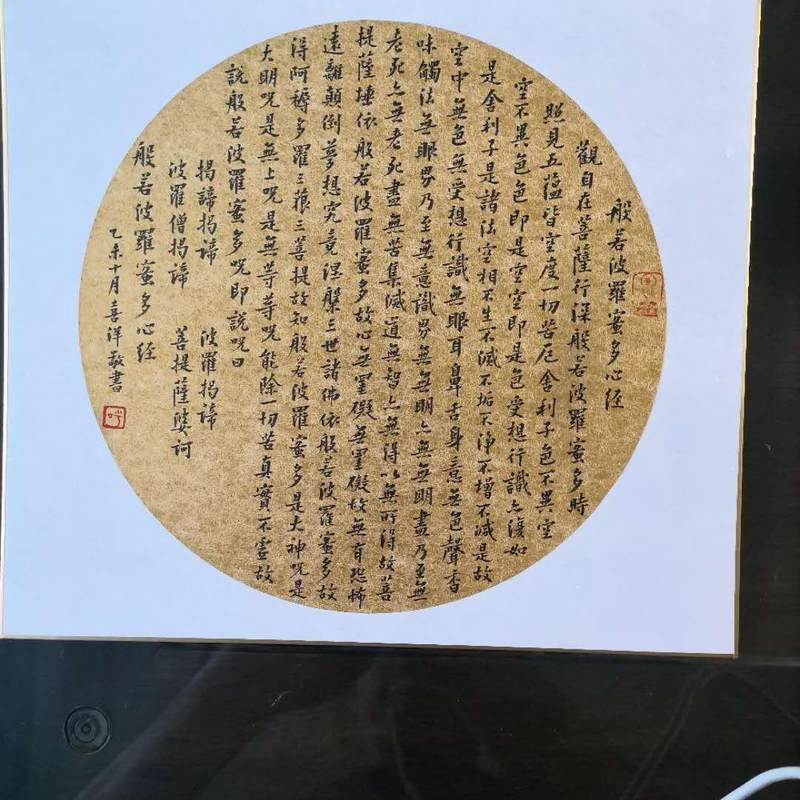 般若波羅蜜多心経
觀自在菩薩行深般若波羅蜜多時
照見五蘊皆空度一切苦厄舍利子色不異空
空不異色色即是空空即是色受想行識亦復如
是舍利子是諸法空相不生不滅不垢不淨不增不減是故
空中無色無受想行識無眼耳鼻舌身意無色聲香
味觸法無眼界乃至無意識界無無明亦無無明盡乃至無
老死亦無老死盡無苦集滅道無智亦無得以無所得故菩
提薩埵依般若波羅蜜多故心無罣礙無罣礙故無有恐怖
遠離顛倒夢想究竟涅槃三世諸佛依般若波羅蜜多故
得阿耨多羅三藐三菩提故知般若波羅蜜多是大神咒是
大明咒是無上咒是無等等咒能除一切苦真實不虛故
說般若波羅蜜多咒即說咒曰
揭諦揭諦 波羅揭諦
波羅僧揭諦 菩提薩婆訶
般若波羅蜜多心経
乙未十月喜洋敬書